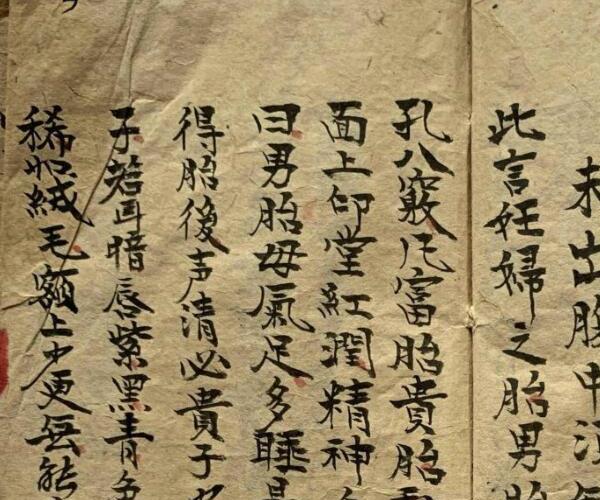 未出腹中須
此言妊婦之胎男胎
孔八竅凡富胎貴胎
面上印堂紅潤精神
曰男胎母氣足多睡是
得胎後声清必貴子也
子若耳暗唇紫黑青色
稀如絨毛額上少更無能